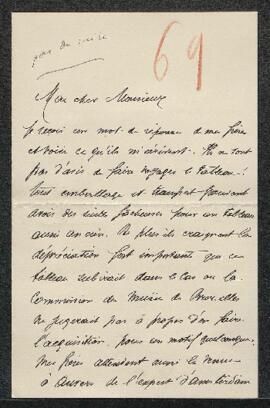 69
Mon cher Monsieur
Je reçois un mot de réponse de mon frère
et voici ce qu'ils m'écrivent. Ils ne sont
pas d'avis de faire voyager le tableau.
Tout emballage et transport pouvant
avoir des suites fâcheuses pour un tableau
aussi ancien. De plus ils craignent la
dépréciation fort importante que ce
tableau subirait dans le cas où la
Commission du Musée de Bruxelles
ne jugerait pas à propos d'en faire
l'acquisition, pour un motif quelconque.
Mes frères attendent aussi la venue
à Anvers de l'expert d'Amsterdam